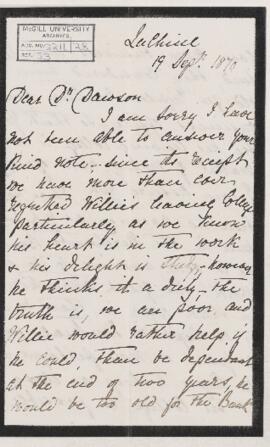 McGILL UNIVERSITY
ARCHIVES
ACC. NO. 2211 / 28
REF.
Lachine
19 Sept. 1870
Dear Dr. Dawson
I am sorry I have
not been able to answer your
kind note - since its receipt
we have more than ever
regretted Willie's leaving College
particularly as we know
his heart is in the work
& his delight is study, however
he thinks it a duty - the
truth is, we are poor, and
Willie would rather help if
he could, than be dependant
at the end of two years, he
would be too old for the Bank